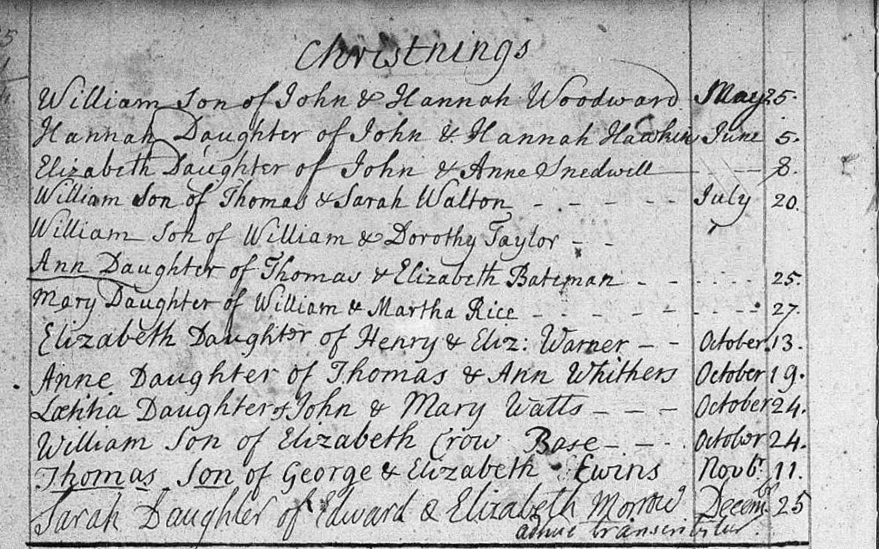 Christnings
William Son of John & Hannah Woodward May 25.
Hannah Daughter of John & Hannah Hawkin June 5.
Elizabeth Daughter of John & Anne Snedwell - - - 8.
William Son of Thomas & Sarah Walton - - - - - July 20.
William Son of William & Dorothy Taylor - -
Ann Daughter of Thomas & Elizabeth Bateman - - - - - - 25.
Mary Daughter of William & Martha Rice - - - - - - - - 27.
Elizabeth Daughter of Henry & Eliz: Warner - - October 13.
Anne Daughter of Thomas & Ann Whithers October 19.
Lætitia Daughter of John & Mary Watts - - - October 24.
William Son of Elizabeth Crow Base - - - October 24.
Thomas Son of George & Elizabeth Ewins Novbr. 11.
Sarah Daughter of Edward & Elizabeth Morrow Decembr 25
adhuc transcribitur.